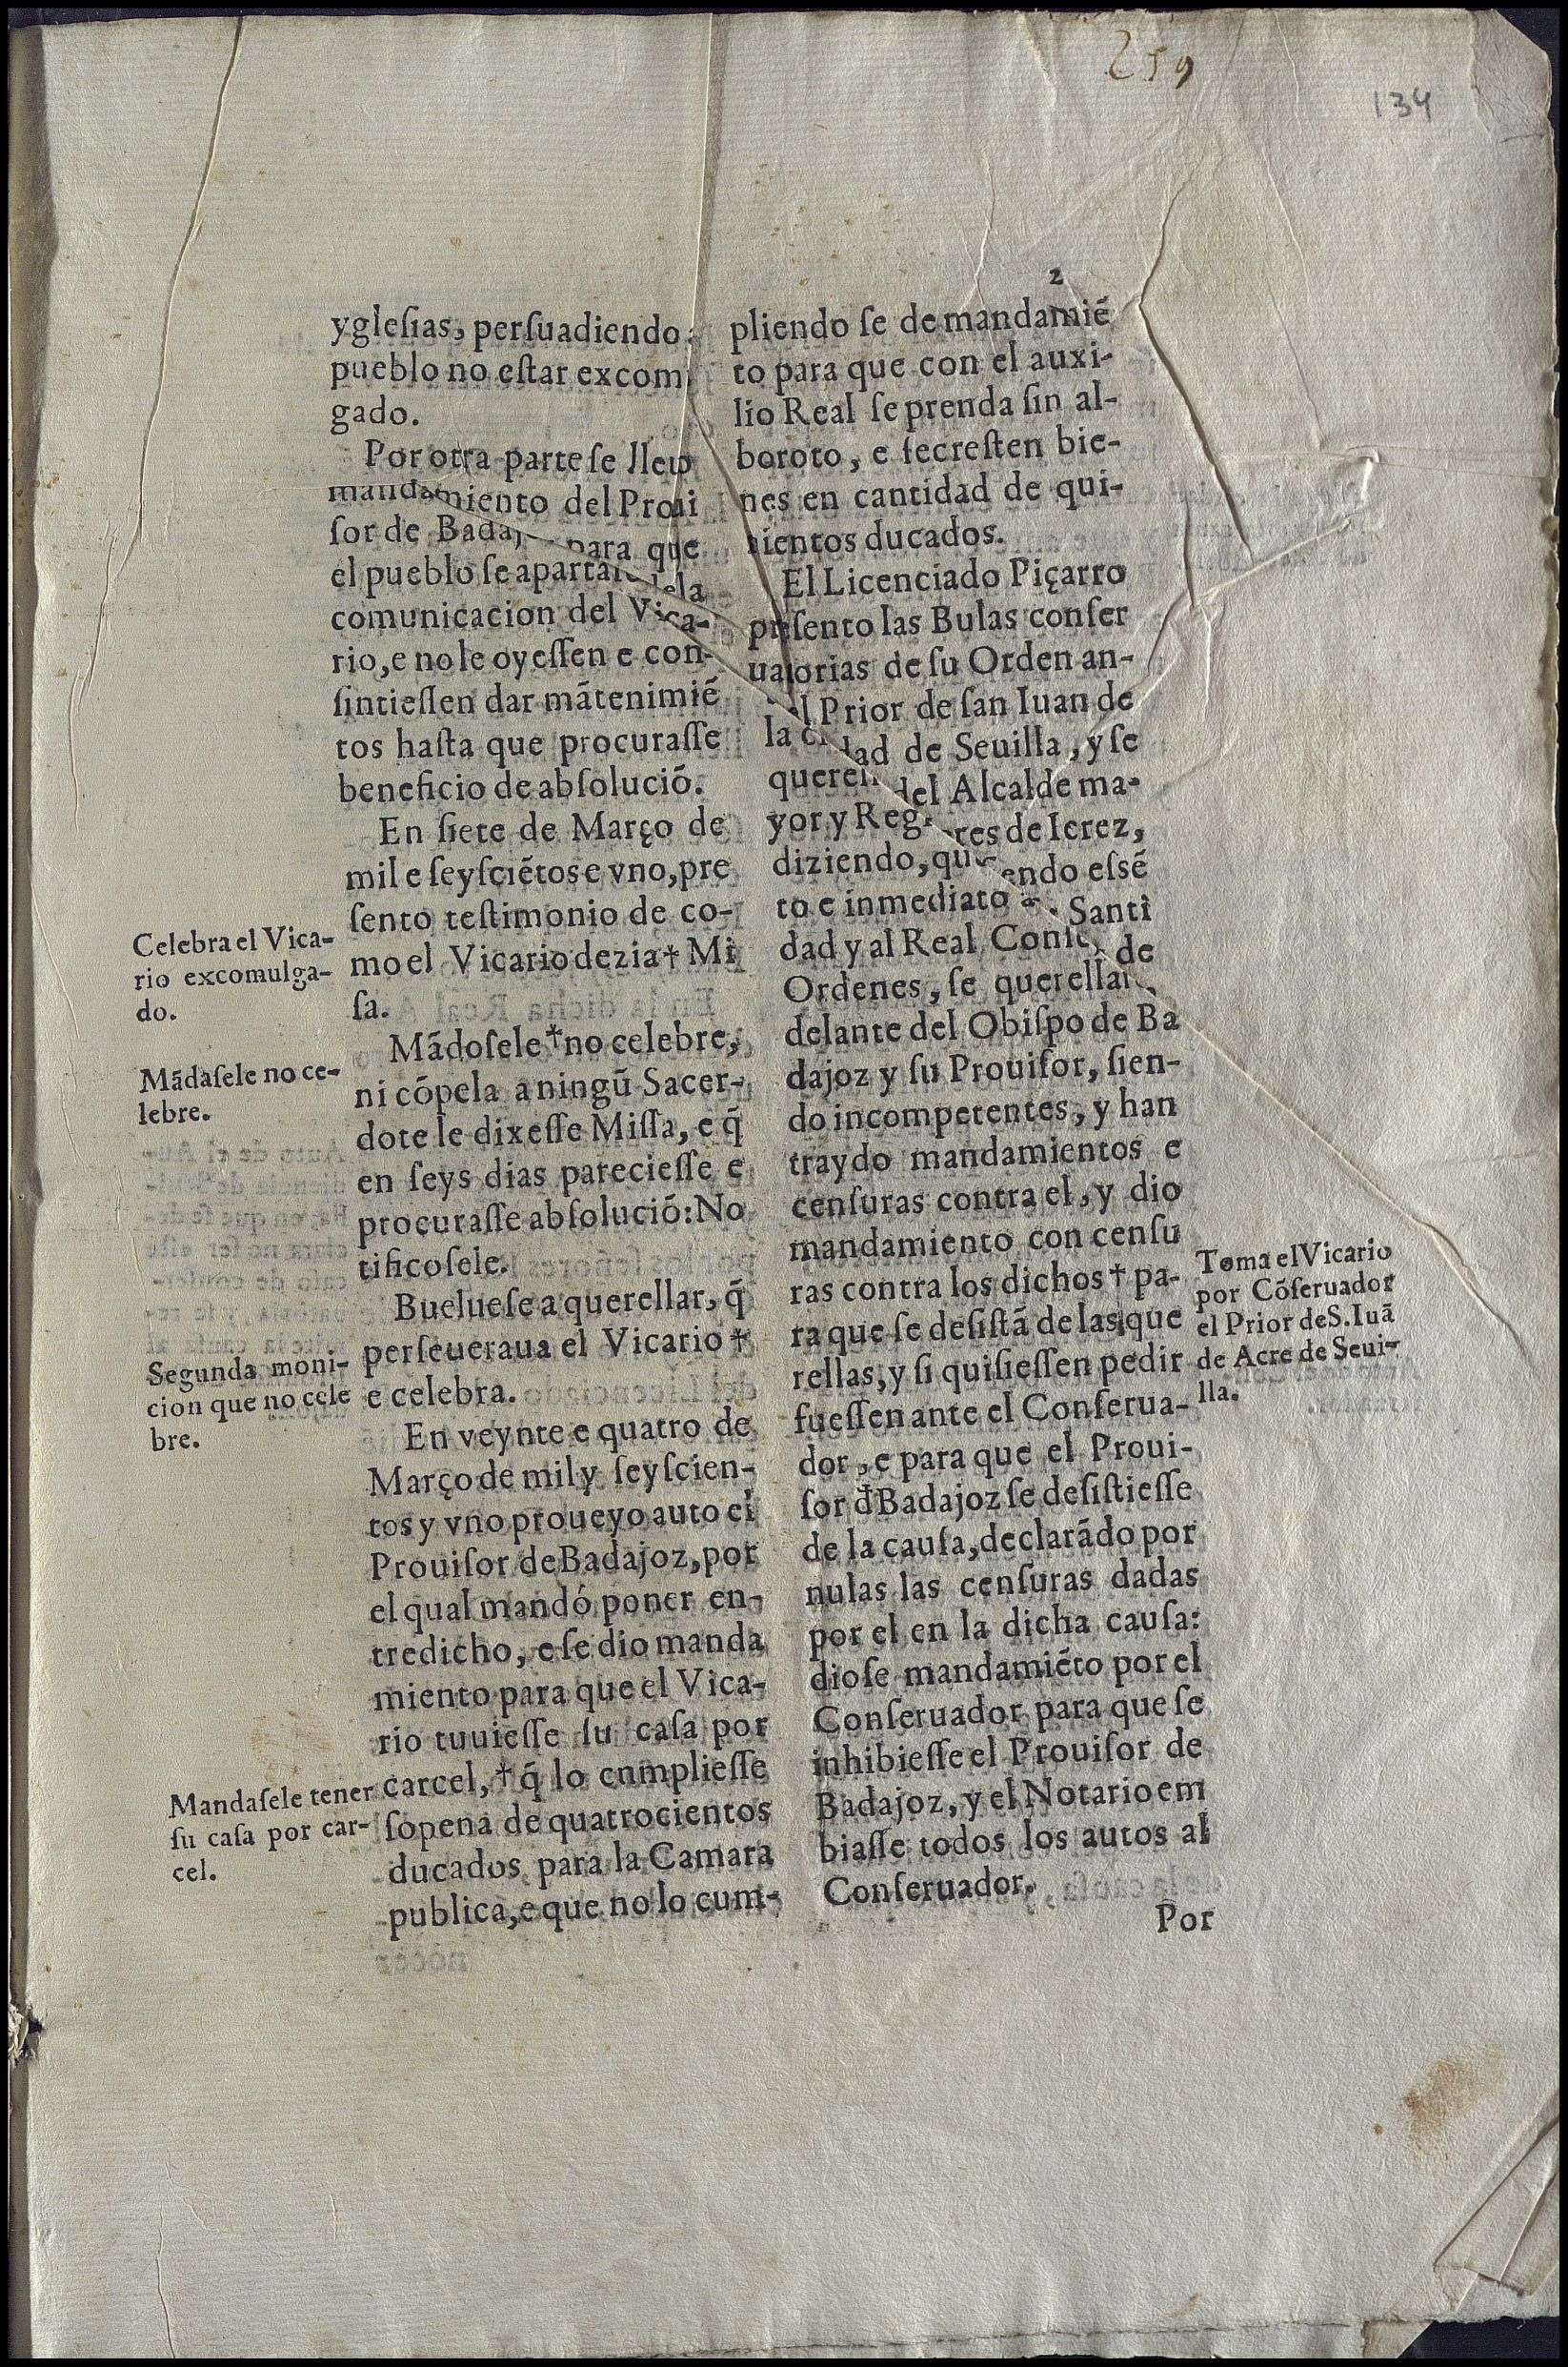 259
134
2
yglesias, persuadiendo
pueblo no estar excom
gado.
Por otra parte se lleuo
mandamiento del Proui
sor de Bada para que
el pueblo se apartas dela
comunicacion del Vica-
rio, e no le oyessen e con-
sintiessen dar mãtenimiẽ
tos hasta que procurasse
beneficio de absoluciõ.
En siete de Março de
mil e seysciẽtos e vno, pre
sento testimonio de co-
mo el Vicario dezia † Mi
sa.
Celebra el Vica-
rio excomulga-
do.
Mãdosele † no celebre,
ni cõpela a ningũ Sacer-
dote le dixesse Missa, e q̃
en seys dias pareciesse e
procurasse absoluciõ: No
tificosele.
Mãdasele no ce-
lebre.
Bueluese a querellar, q̃
perseueraua el Vicario †
e celebra.
Segunda moni-
cion que no cele
bre.
En veynte e quatro de
Março de mil y seyscien-
tos y vno proueyo auto el
Prouisor de Badajoz, por
el qual mandó poner en-
tredicho, e se dio manda
miento para que el Vica-
rio tuuiesse su casa por
carcel, † q̃ lo cumpliesse
sopena de quatrocientos
ducados para la Camara
publica, e que no lo cum-
Mandasele tener
su casa por car-
cel.
pliendo se de mandamiẽ
to para que con el auxi-
lio Real se prenda sin al-
boroto, e secresten bie-
nes en cantidad de qui-
nientos ducados.
El Licenciado Piçarro
presento las Bulas conser
uatorias de su Orden an-
el Prior de san Iuan de
la ci dad de Seuilla, y se
querell del Alcalde ma-
yor y Reg res de Ierez,
diziendo, que endo essẽ
to e inmediato a Santi
dad y al Real Conse de
Ordenes, se querellar
delante del Obispo de Ba
dajoz y su Prouisor, sien-
do incompetentes, y han
traydo mandamientos e
censuras contra el, y dio
mandamiento con censu
ras contra los dichos † pa-
ra que se desistã de las que
rellas, y si quisiessen pedir
fuessen ante el Conserua-
dor, e para que el Proui-
sor d̃ Badajoz se desistiesse
de la causa, declarãdo por
nulas las censuras dadas
por el en la dicha causa:
diose mandamiẽto por el
Conseruador para que se
inhibiesse el Prouisor de
Badajoz, y el Notario em
biasse todos los autos al
Conseruador.
Toma el Vicario
por Cõseruador
el Prior de S. Iuã
de Acre de Seui-
lla.
Por